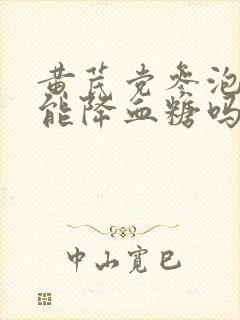 黄芪党参泡
能降血糖吗
中山宽巳